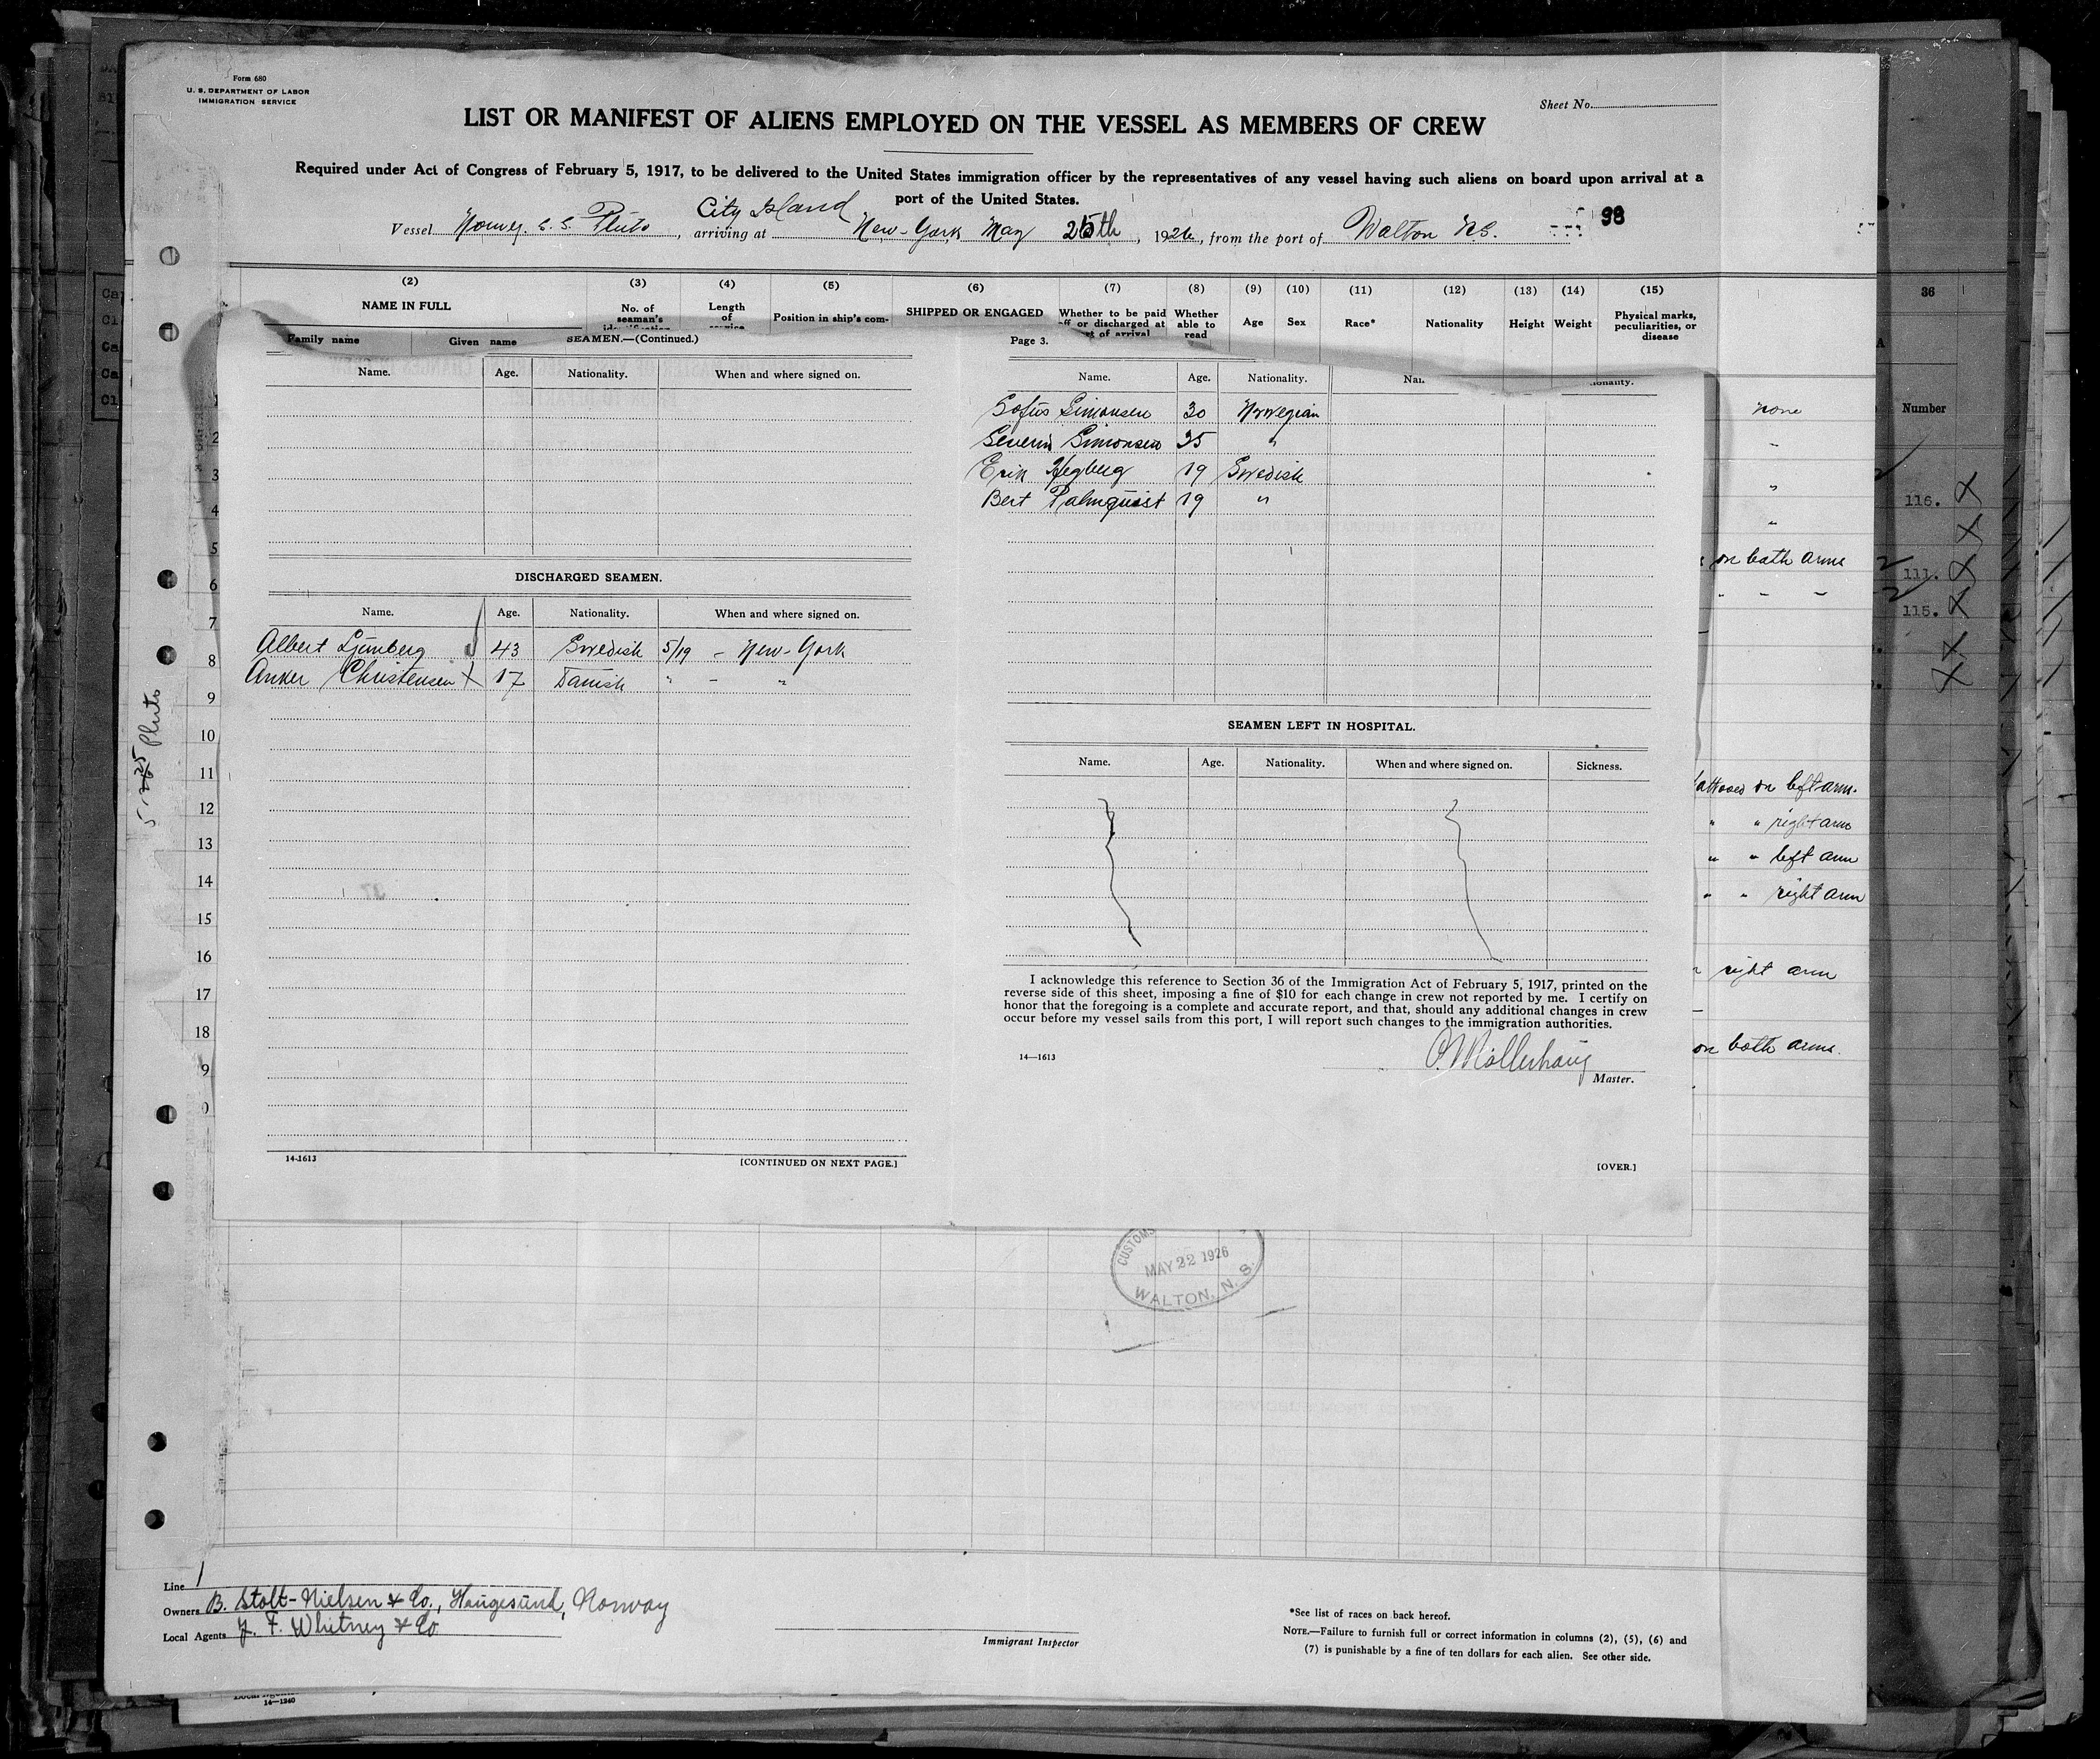 Form 680
U. S. DEPARTMENT OF LABOR
IMMIGRATION SERVICE
Sheet No.
LIST OR MANIFEST OF ALIENS EMPLOYED ON THE VESSEL AS MEMBERS OF CREW
Required under Act of Congress of February 5, 1917, to be delivered to the United States immigration officer by the representatives of any vessel having such aliens on board upon arrival at a
port of the United States.
City Island
Vessel Norweg. S.S. Pluto, arriving at New-York May 25th, 1926, from the port of Walton N.S. 98
(2) (3) (4) (5) (6) (7) (8) (9) (10) (11) (12) (13) (14) (15)
NAME IN FULL No. of seaman's Length of Position in ship's com- SHIPPED OR ENGAGED Whether to be paid off or discharged at port of arrival Whether able to read Age Sex Race* Nationality Height Weight Physical marks, peculiarities, or disease
36
Family name Given name
SEAMEN.—(Continued.)
Name. Age. Nationality. When and where signed on.
1
2
3
4
5
6
7
8
9
10
11
12
13
14
15
16
17
18
9
0
DISCHARGED SEAMEN.
Name. Age. Nationality. When and where signed on.
Albert Ljunberg 43 Swedish 5/19 - New-York
Anker Christensen X 17 Danish " - "
14-1613
[CONTINUED ON NEXT PAGE.]
Page 3.
Name. Age. Nationality.
Sofus Simonsen 30 Norwegian
Severin Simonsen 35 "
Erik Hegberg 19 Swedish
Bert Palmquist 19 "
SEAMEN LEFT IN HOSPITAL.
Name. Age. Nationality. When and where signed on. Sickness.
I acknowledge this reference to Section 36 of the Immigration Act of February 5, 1917, printed on the
reverse side of this sheet, imposing a fine of $10 for each change in crew not reported by me. I certify on
honor that the foregoing is a complete and accurate report, and that, should any additional changes in crew
occur before my vessel sails from this port, I will report such changes to the immigration authorities.
14—1613
Master.
[OVER.]
none
"
"
on both arms
" " "
tattooed on left arm.
" " right arm
" " left arm
" " right arm
right arm
on both arms.
Number
116. X
X
111. X
115. X
X
X
5-25 Pluto
CUSTOMS
MAY 22 1926
WALTON, N. S.
Line
Owners B. Stolt-Nielsen & Co., Haugesund, Norway
Local Agents J. F. Whitney & Co
Immigrant Inspector
*See list of races on back hereof.
NOTE.—Failure to furnish full or correct information in columns (2), (5), (6) and
(7) is punishable by a fine of ten dollars for each alien. See other side.
14—1240